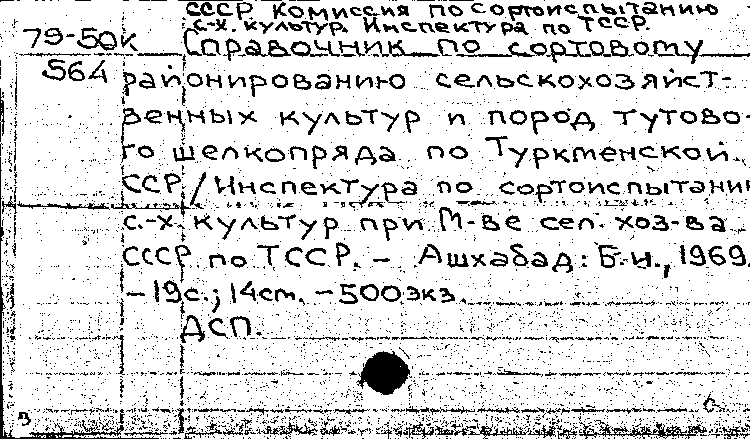 СССР. Комиссия по сортоиспытанию
с.-х. культур. Инспектура по ТССР.
79-50к Справочник по сортовому
564 районированию сельскохозяйст-
венных культур и пород тутово-
го шелкопряда по Туркменской
ССР / Инспектура по сортоиспытанию
с.-х. культур при М-ве сел. хоз-ва
СССР по ТССР. - Ашхабад: Б.и., 1969.
- 19с.; 14см. - 500экз.
ДСП.